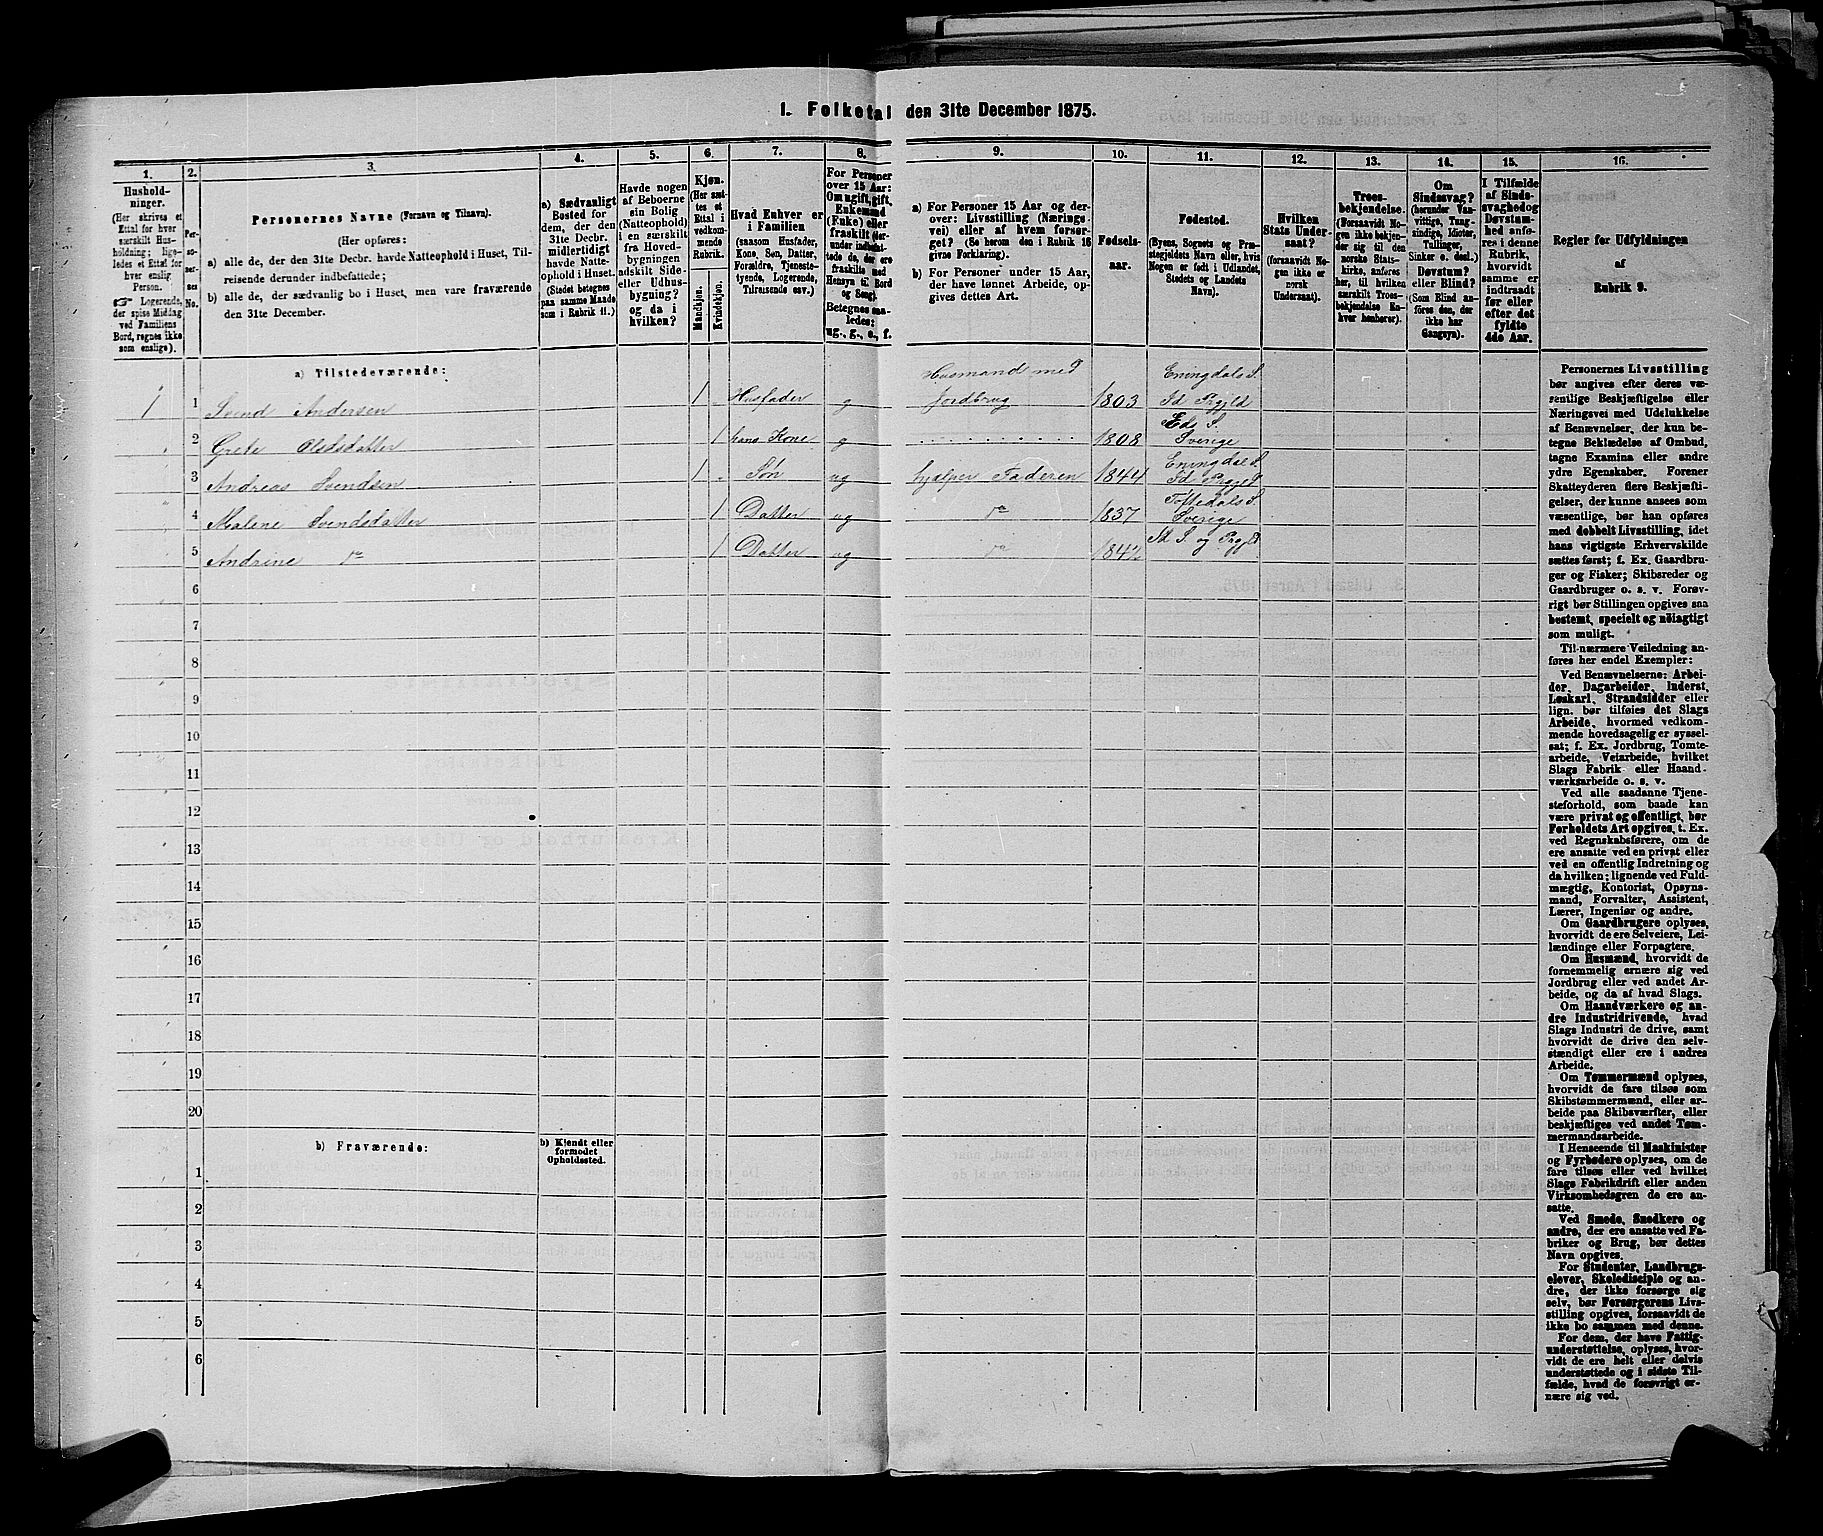 1. Folketal den 31te December 1875.
1.
Hushold-
ninger.
(Her skrives et
Ettal for hver
særskilt Hus-
holdning; lige-
ledes et Ettal for
hver enslig
Person.
☞ Logerende,
der spise Middag
ved Familiens
Bord, regnes ikke
som enslige).
2.
Per-
so-
ner-
nes
No.
3.
Personernes Navne (Fornavn og Tilnavn).
(Her opføres:
a) alle de, der den 31te Decbr. havde Natteophold i Huset, Til-
reisende derunder indbefattede;
b) alle de, der sædvanlig bo i Huset, men vare fraværende
den 31te December.
4.
a) Sædvanligt
Bosted for
dem, der den
31te Decbr.
midlertidigt
havde Natte-
ophold i Huset.
(Stedet betegnes
paa samme Maade
som i Rubrik 11.)
5.
Havde nogen
af Beboerne
sin Bolig
(Natteophold)
i en særskilt
fra Hoved-
bygningen
adskilt Side-
eller Udhus-
bygning?
og da i
hvilken?
6.
Kjøn.
(Her sæt-
tes et
Ettal i
vedkom-
mende
Rubrik.
Mandkjøn.
Kvindekjøn.
7.
Hvad Enhver er
i Familien
(saasom Husfader,
Kone, Søn, Datter,
Forældre, Tjeneste-
tyende, Logerende,
Tilreisende osv.)
8.
For Personer
over 15 Aar:
Om ugift, gift,
Enkemand
(Enke) eller
fraskilt (her-
under indbefat-
tede de, der ere
fraskilte med
Hensyn til Bord
og Seng).
Betegnes saa-
ledes:
ug., g., e., f.
9.
a) For Personer 15 Aar og der-
over: Livsstilling (Nærings-
vei) eller af hvem forsør-
get? (Se herom den i Rubrik 16
givne Forklaring).
b) For Personer under 15 Aar,
der have lønnet Arbeide, op-
gives dettes Art.
10.
Fødsels-
aar.
11.
Fødested.
(Byens, Sognets og Præ-
stegjeldets Navn eller, hvis
Nogen er født i Udlandet,
Stedets og Landets
Navn).
12.
Hvilken
Stats Under-
saat?
(forsaavidt No-
gen ikke er
norsk
Undersaat).
13.
Troes-
bekjendelse.
(Forsaavidt No-
gen ikke bekjen-
der sig til den
norske Stats-
kirke, anføres
her, til hvilken
særskilt Troes-
bekjendelse En-
hver henhører).
14.
Om
Sindssvag?
(herunder Van-
vittige, Tung-
sindige, Idioter,
Tullinger,
Sinker o. desl.)
Døvstum?
eller Blind?
(Som Blind an-
føres den, der
ikke har
Gangsyn).
15.
I Tilfælde
af Sinds-
svaghed og
Døvstum-
hed anfø-
res i denne
Rubrik,
hvorvidt
samme er
indtraadt
før eller
efter det
fyldte
4de Aar.
16.
Regler for Udfyldningen
af
Rubrik 9.
a) Tilstedeværende:
1 1 Svend Andersen 1 Husfader g Husmand med Jordbrug 1803 Eningdals S. Id Prgjld
2 Grete Olsdatter 1 hans Kone g 1808 Eds S. Sverige
3 Andreas Svendsen 1 Søn ug hjælper Faderen 1844 Eningdal S. Id Prgjeld
4 Malene Svendsdatter 1 Datter ug do 1837 S. Sverige
5 Andrine do 1 Datter ug do 184 Id S. og Prgjld
6
7
8
9
10
11
12
13
14
15
16
17
18
19
20
b) Fraværende:
b) Kjendt eller
formodet
Opholdssted.
1
2
3
4
5
6
Personernes Livsstilling
bør angives efter deres væ-
sentlige Beskjæftigelse eller
Næringsvei med Udelukkelse
af Benævnelser, der kun be-
tegne Beklædelse af Ombud,
tagne Examina eller andre
ydre Egenskaber. Forener
Skatteyderen flere Beskjæfti-
gelser, der kunne ansees som
væsentlige, bør han opføres
med dobbelt Livsstilling, idet
hans vigtigste Erhvervskilde
sættes først; f. Ex. Gaardbru-
ger og Fisker; Skibsreder og
Gaardbruger o. s. v. Forøv-
rigt bør Stillingen opgives saa
bestemt, specielt og nøiagtigt
som muligt.
Til nærmere Veiledning an-
føres her endel Exempler:
Ved Benævnelserne: Arbei-
der, Dagarbeider, Inderst,
Løskarl, Strandsidder eller
lign. bør tilføies det Slags
Arbeide, hvormed vedkom-
mende hovedsagelig er syssel-
sat; f. Ex. Jordbrug, Tomte-
arbeide, Veiarbeide, hvilket
Slags Fabrik eller Haand-
værksarbeide o. s. v.
Ved alle saadanne Tjene-
steforhold, som baade kan
være privat og offentligt, bør
Forholdets Art opgives, t. Ex.
ved Regnskabsførere, om de
ere ansatte ved en privat eller
ved en offentlig Indretning og
da hvilken; lignende ved Fuld-
mægtig, Kontorist, Opsyns-
mand, Forvalter, Assistent,
Lærer, Ingeniør og andre.
Om Gaardbrugere oplyses,
hvorvidt de ere Selveiere, Lei-
lændinge eller Forpagtere.
Om Husmænd, hvorvidt de
fornemmelig ernære sig ved
Jordbrug eller ved andet Ar-
beide, og da af hvad Slags.
Om Haandværkere og an-
dre Industridrivende, hvad
Slags Industri de drive, samt
hvorvidt de drive den selv-
stændigt eller ere i andres
Arbeide.
Om Tømmermænd oplyses,
hvorvidt de fare tilsøs som
Skibstømmermænd, eller ar-
beide paa Skibsværfter, eller
beskjæftiges ved andet Tøm-
mermandsarbeide.
I Henseende til Maskinister
og Fyrbødere oplyses, om de
fare tilsøs eller ved hvilket
Slags Fabrikdrift eller anden
Virksomhedsgren de ere an-
satte.
Ved Smede, Snedkere og
andre, der ere ansatte ved Fa-
briker og Brug, bør dettes
Navn opgives.
For Studenter, Landbrugs-
elever, Skoledisciple og an-
dre, der ikke forsørge sig
selv, bør Forsørgerens Livs-
stilling opgives, forsaavidt de
ikke bo sammen med denne.
For dem, der have Fattig-
understøttelse, oplyses, hvor-
vidt de ere helt eller delvis
understøttede og i sidste Til-
fælde, hvad de forøvrigt er-
nære sig ved.